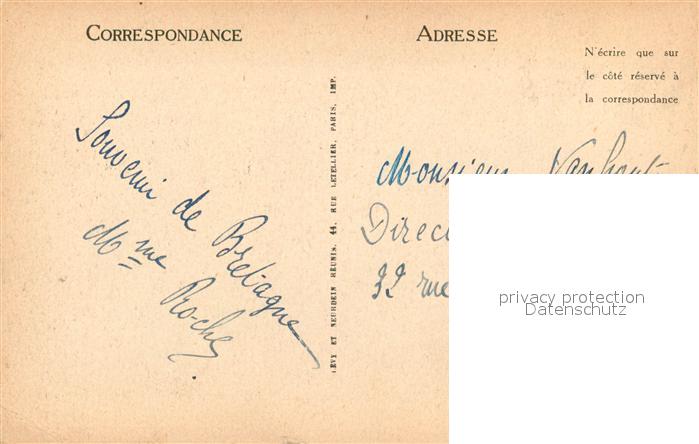 CORRESPONDANCE
ADRESSE
N'écrire que sur
le côté réservé à
la correspondance
Souvenir de Bretagne
Mme Roche
LÉVY ET NEURDEIN RÉUNIS, 44, RUE LETELLIER, PARIS, IMP.
Monsieur Vanhout
Direc
32 rue
privacy protection
Datenschutz